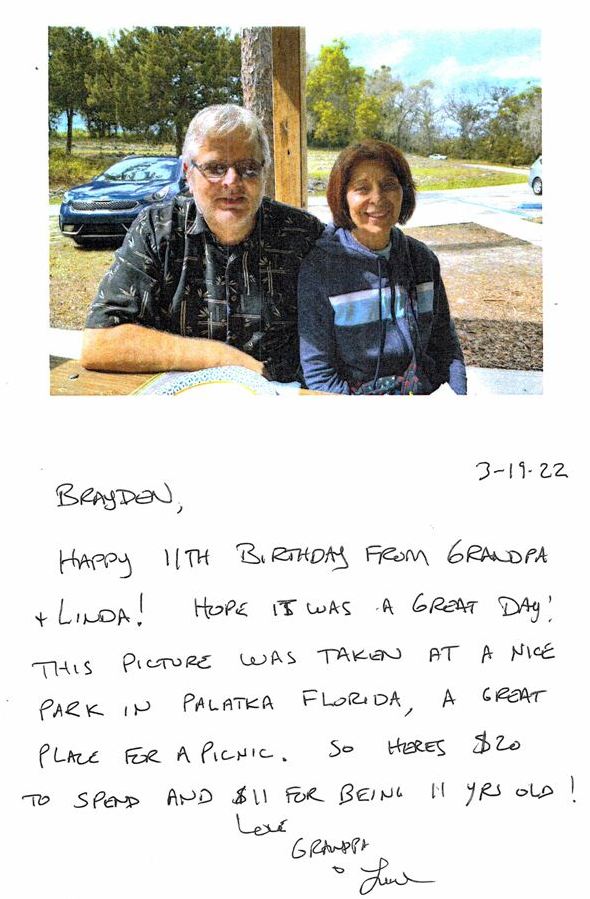 3-19-22
BRAYDEN,
HAPPY 11TH BIRTHDAY FROM GRANDPA
+ LINDA! HOPE IT WAS A GREAT DAY!
THIS PICTURE WAS TAKEN AT A NICE
PARK IN PALATKA FLORIDA, A GREAT
PLACE FOR A PICNIC. SO HERES $20
TO SPEND AND $11 FOR BEING 11 YRS OLD!
Love
GRANDPA